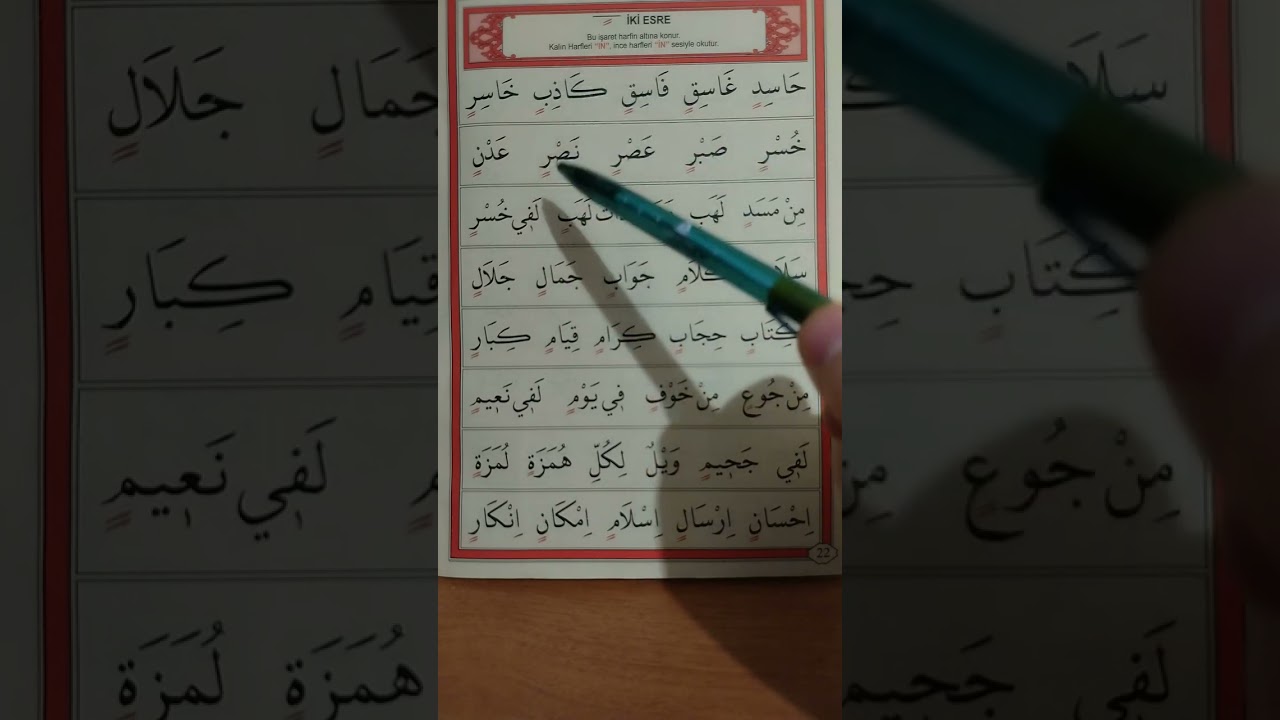 İKİ ESRE
Bu işaret harfin altına konur.
Kalın Harfleri "IN", ince harfleri "İN" sesiyle okutur.
حَاسِدٍ غَاسِقٍ فَاسِقٍ كَاذِبٍ خَاسِرٍ
خُسْرٍ صَبْرٍ عَصْرٍ نَصْرٍ عَدْنٍ
مِنْ مَسَدٍ لَهَبٍ لَهَبٍ لَفِي خُسْرٍ
كَلَامٍ جَوَابٍ جَمَالٍ جَلَالٍ
كِتَابٍ حِجَابٍ كِرَامٍ قِيَامٍ كِبَارٍ
مِنْ جُوعٍ مِنْ خَوْفٍ فِي يَوْمٍ لَفِي نَعِيمٍ
لَفِي جَحِيمٍ وَيْلٌ لِكُلِّ هُمَزَةٍ لُمَزَةٍ
اِحْسَانٍ اِرْسَالٍ اِسْلَامٍ اِمْكَانٍ اِنْكَارٍ
22